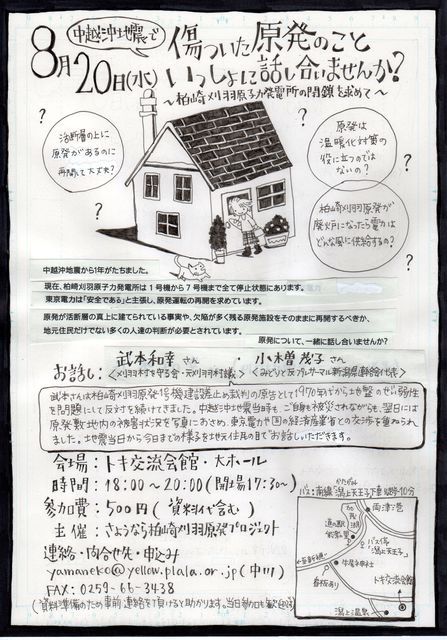 8月20日(水)
中越沖地震で
傷ついた原発のこと
いっしょに話し合いませんか?
〜柏崎刈羽原子力発電所の閉鎖を求めて〜
活断層の上に
原発があるのに
再開って大丈夫?
原発は
温暖化対策の
役に立つのでは
ないの?
柏崎刈羽原発が
廃炉になったら電力は
どんな風に供給するの?
?
?
?
?
中越沖地震から1年がたちました。
現在、柏崎刈羽原子力発電所は1号機から7号機まで全て停止状態にあります。
東京電力は「安全である」と主張し、原発運転の再開を求めています。
原発が活断層の真上に建てられている事実や、欠陥が多く残る原発施設をそのままに再開するべきか、
地元住民だけでない多くの人達の判断が必要とされています。
原発について、一緒に話し合いませんか?
お話し:
武本和幸さん
<刈羽村を守る会・元刈羽村村議>
小木曽茂子さん
<みどりと反プルサーマル新潟県連絡会代表>
武本さんは柏崎刈羽原発1号機建設差止め裁判の原告として1970年代から地盤のぜい弱性
を問題にして反対を続けてきました。中越沖地震当時も、ご自身も被災されながらも、翌日には
原発敷地内の被害状況を写真におさめ、東京電力や国の経済産業省との交渉を重ねられ
ました。地震当日から今日までの様子を地元住民の目でお話しいただきます。
会場:トキ交流会館・大ホール
時間:18:00〜20:00(開場17:30〜)
参加費:500円(資料代含む)
主催:さようなら柏崎刈羽原発プロジェクト
連絡・問合せ先・申込み
yamaneko@yellow.plala.or.jp(中川)
FAX:0259-66-3438
(資料準備のため事前連絡を頂けると助かります。当日参加も歓迎)
バス:南線 潟上天王下下車 徒歩10分
かたがみ
両津港
加茂湖
バス停
「潟上天王下」
牛尾神社
トキ交流会館
潟上温泉